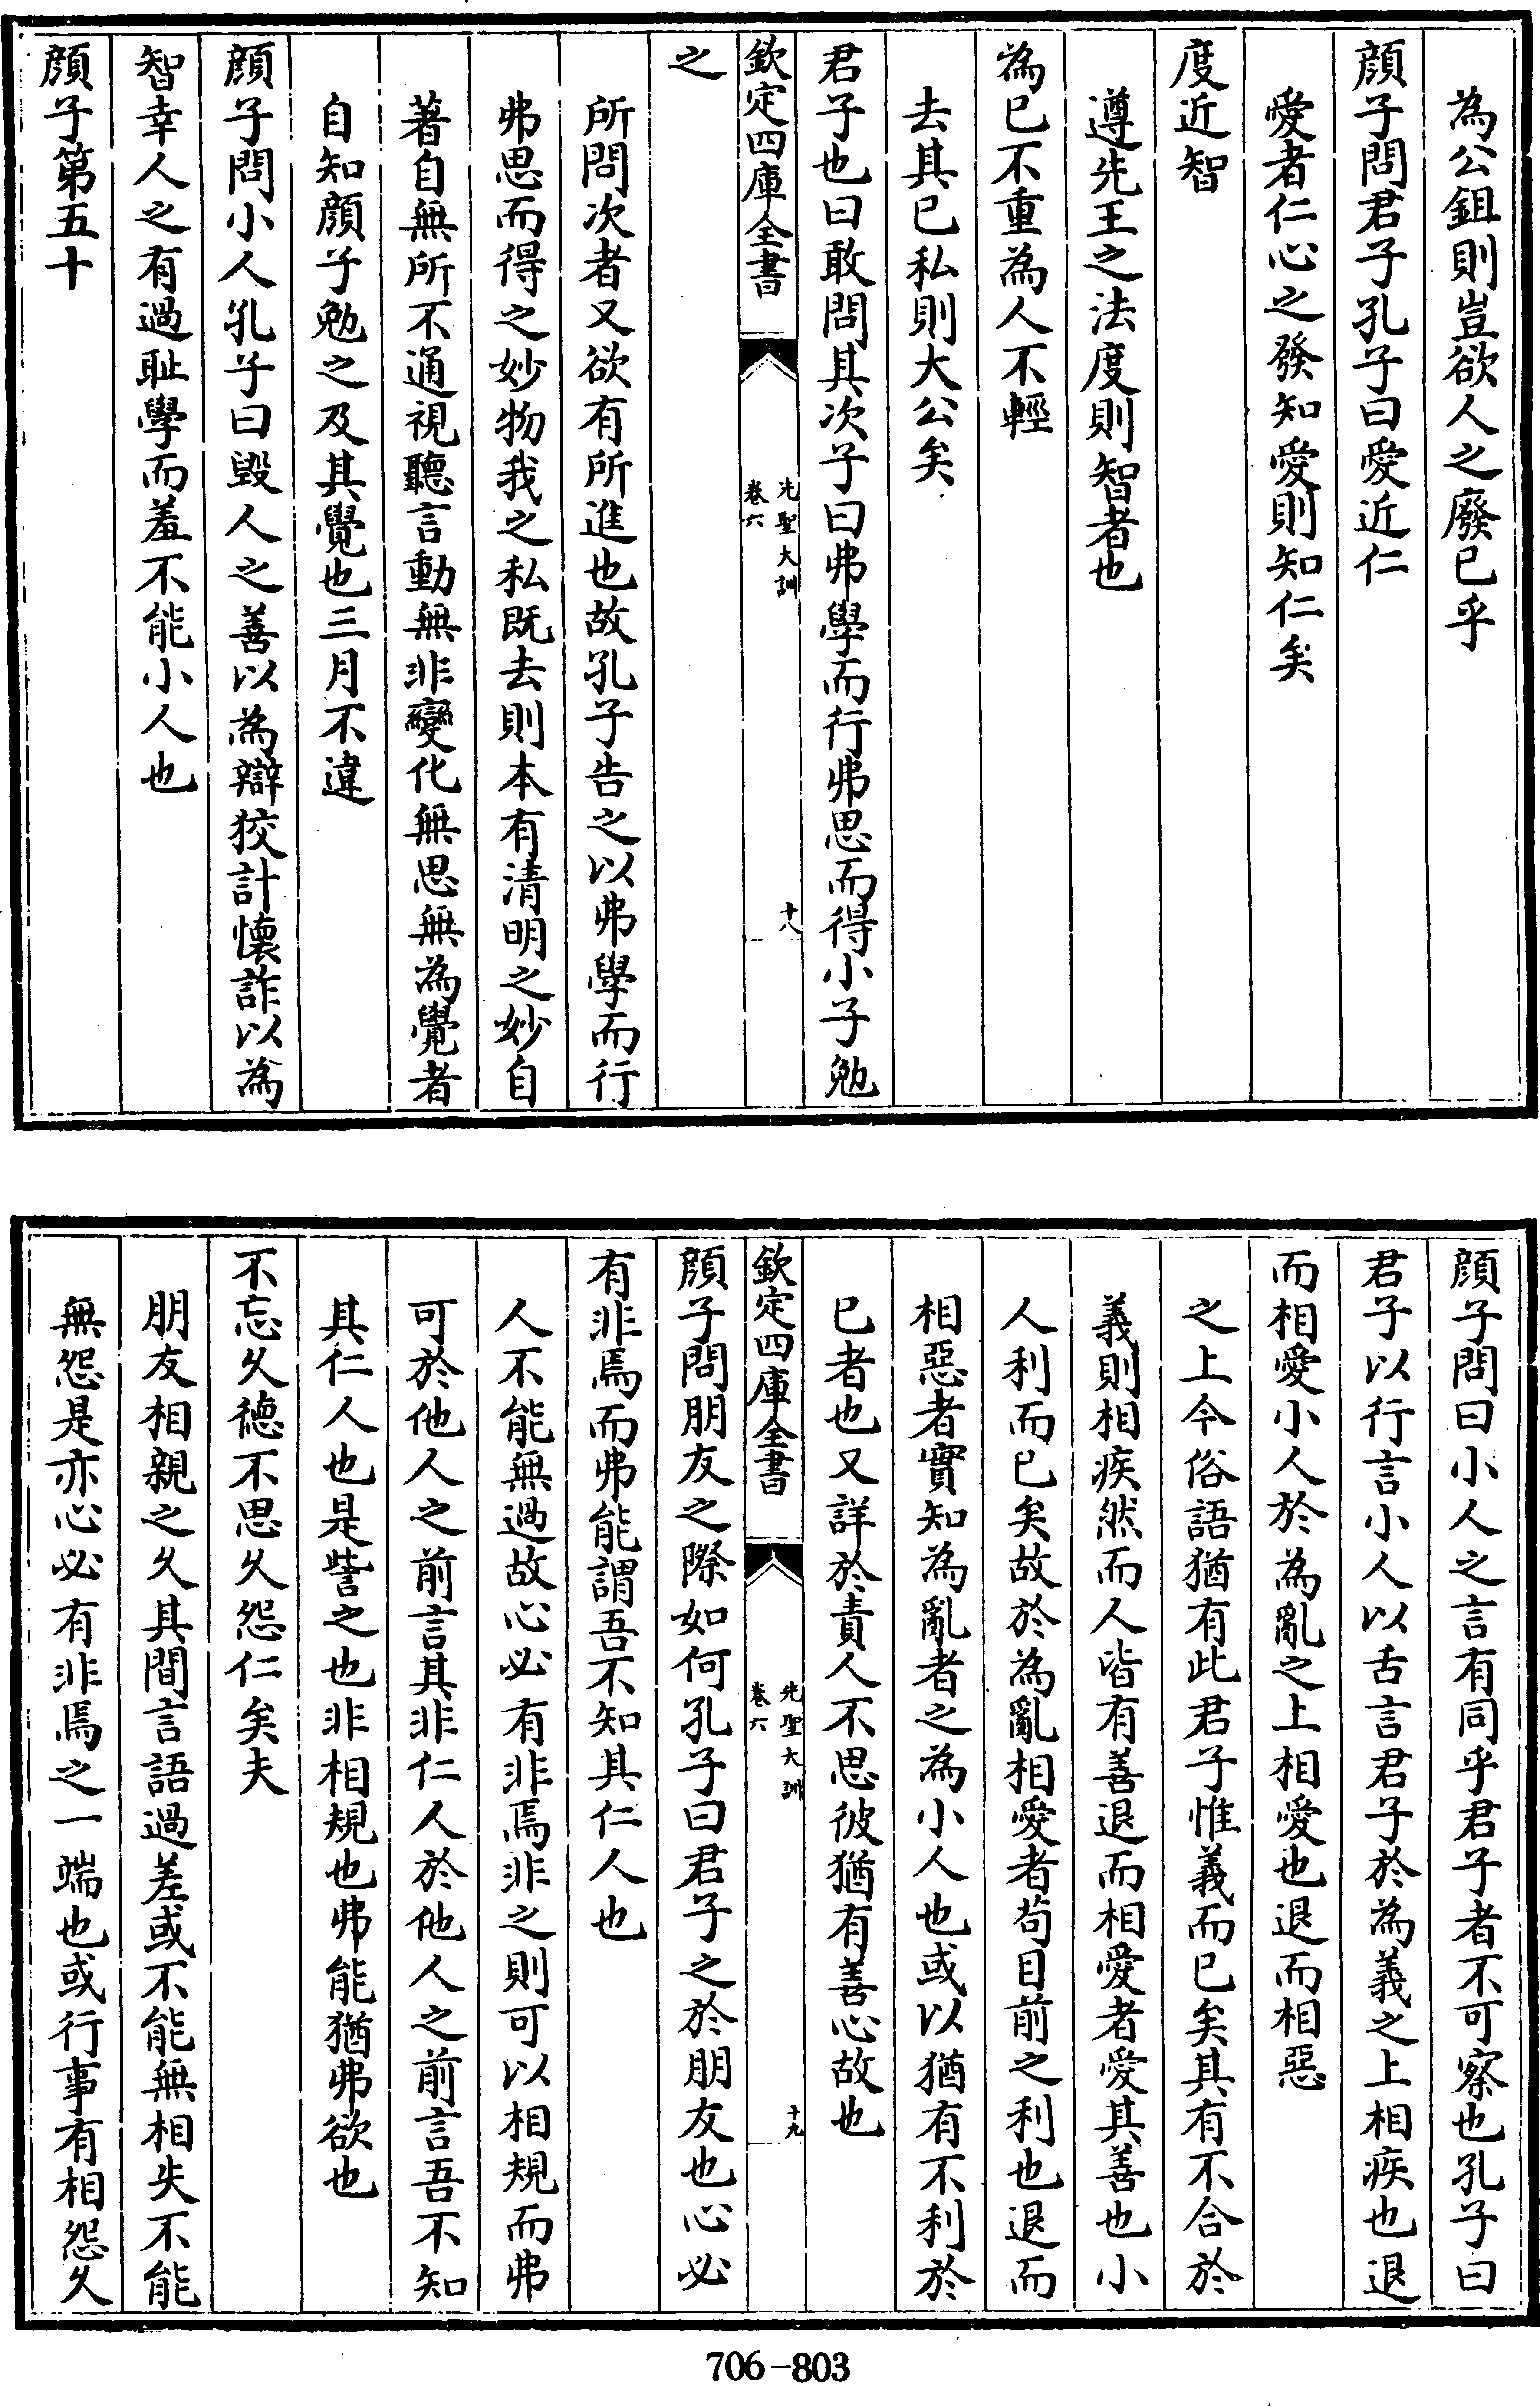 為公鉏則豈欲人之廢已乎
顔子問君子孔子曰愛近仁
愛者仁心之發知愛則知仁矣
度近智
遵先王之法度則智者也
為已不重為人不輕
去其已私則大公矣
君子也曰敢問其次子曰弗學而行弗思而得小子勉
欽定四庫全書
先聖大訓
卷六
十八
之
所問次者又欲有所進也故孔子告之以弗學而行
弗思而得之妙物我之私既去則本有清明之妙自
著自無所不通視聽言動無非變化無思無為覺者
自知顔子勉之及其覺也三月不違
顔子問小人孔子曰毀人之善以為辯狡計懷詐以為
智幸人之有過恥學而羞不能小人也
顔子第五十
顔子問曰小人之言有同乎君子者不可察也孔子曰
君子以行言小人以舌言君子於為義之上相疾也退
而相愛小人於為亂之上相愛也退而相惡
之上今俗語猶有此君子惟義而已矣其有不合於
義則相疾然而人皆有善退而相愛者愛其善也小
人利而已矣故於為亂相愛者茍目前之利也退而
相惡者實知為亂者之為小人也或以猶有不利於
已者也又詳於責人不思彼猶有善心故也
欽定四庫全書
先聖大訓
卷六
十九
顔子問朋友之際如何孔子曰君子之於朋友也心必
有非焉而弗能謂吾不知其仁人也
人不能無過故心必有非焉非之則可以相規而弗
可於他人之前言其非仁人於他人之前言吾不知
其仁人也是訾之也非相規也弗能猶弗欲也
不忘久德不思久怨仁矣夫
朋友相親之久其間言語過差或不能無相失不能
無怨是亦心必有非焉之一端也或行事有相怨久
706-803